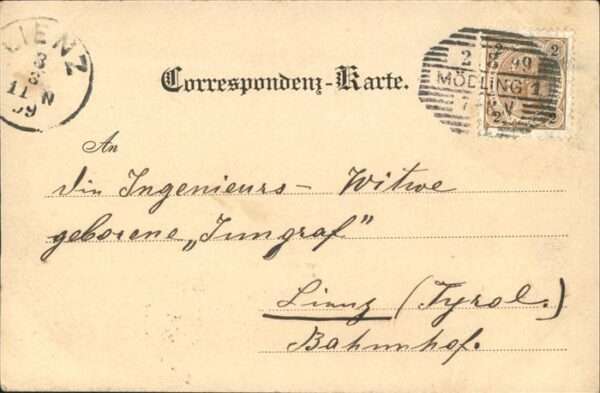 LIENZ
3
8
11 N
99
2 8 99
MÖDLING 1
7 - N
2
2
2
2
Correspondenz-Karte.
An
die Ingenieurs - Witwe
geborene „Jungraf"
Lienz (Tyrol.)
Bahnhof.